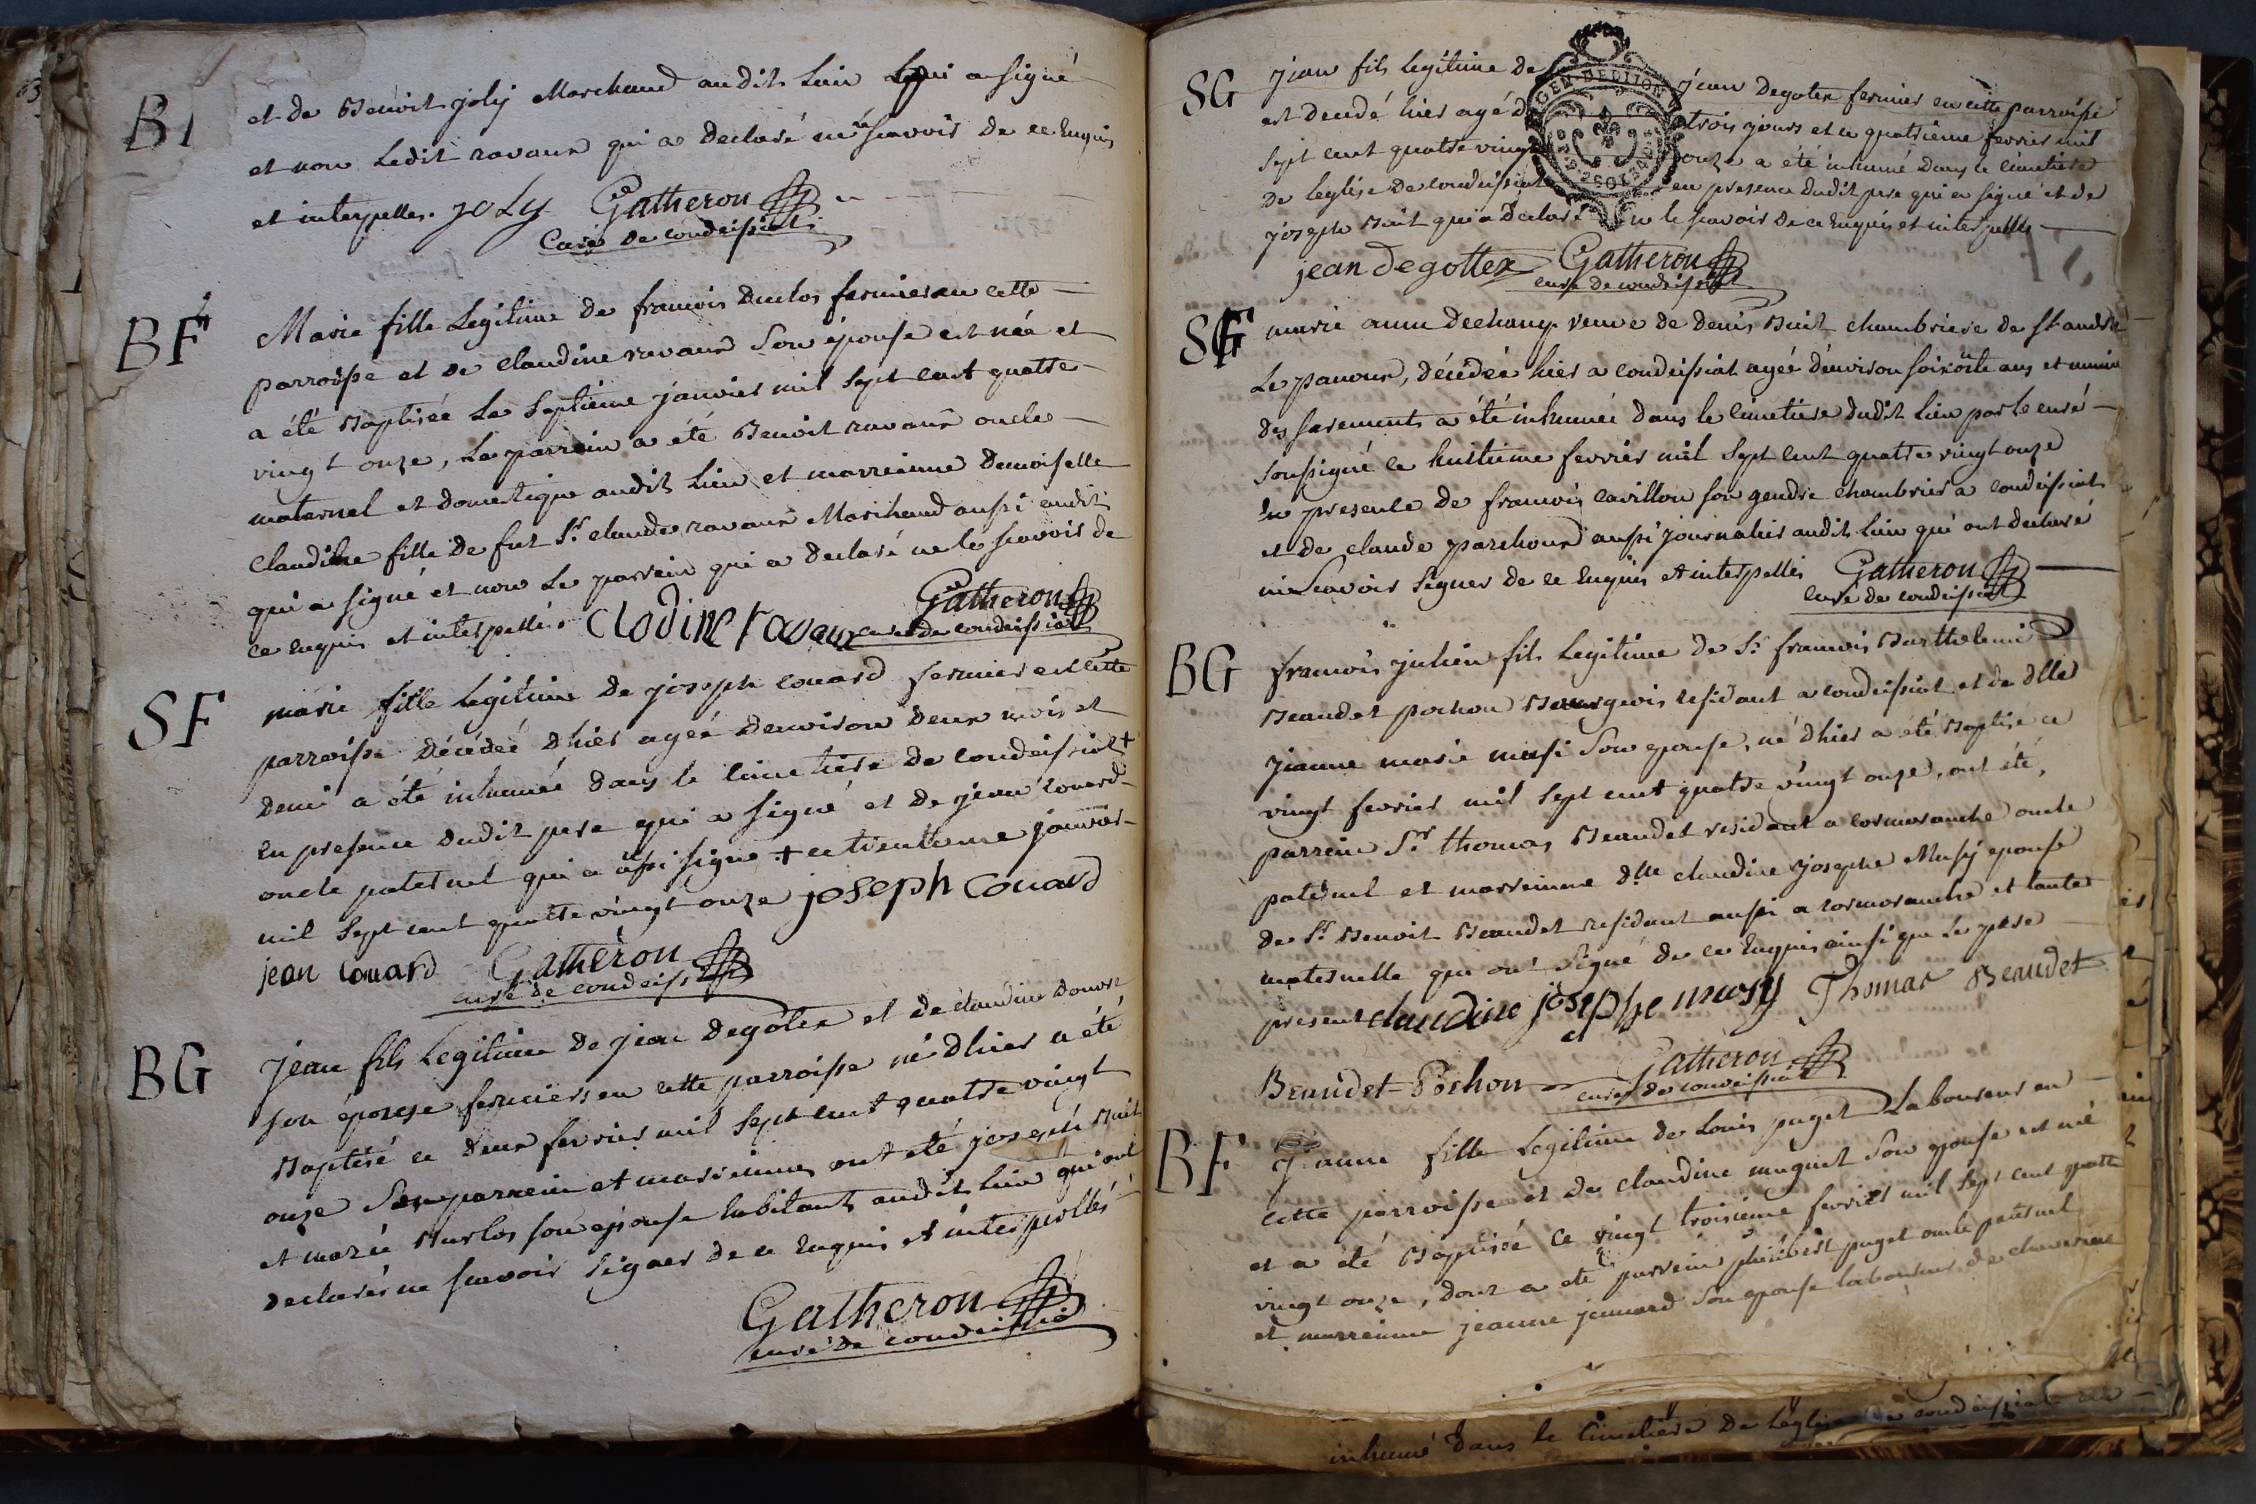 BF
et de Benoit joly Marchand audit Lieu Lequi a signé
et non Ledit ravaux qui a declaré ne scavoir de ce Enquis
et interpellés. joLy Gatheron
Curé de condeissiat
BF
Marie fille Legitime de francois Duclos fermier en cette
parroisse et de claudine ravaux Son épouse est née et
a été Baptisée Le Septieme janvier mil Sept cent quatre
vingt onze, Le parrein a été Benoit ravaux oncle
maternel et domestique audit lieu et marreinne Demoiselle
claudine fille de fut Sr. claude ravaux Marchand aussi audit
qui a signé et non Le parrein qui a declaré ne le scavoir de
ce enquis et interpellés. Clodine ravaux Gatheron
curé de condeissiat
SF
marie fille Legitime de joseph couard fermier en cette
parroisse décédée d'hier agée denviron deux mois et
demi a été inhumée dans le cimetiere de condeissiat +
en presence dudit pere qui a signé et de jean couard
oncle paternel qui a aussi signé + ce trentieme janvier
mil Sept cent quatre vingt onze joseph Couard
jean Couard Gatheron
curé de condeissiat
BG
jean fils Legitime de jean Degotex et de claudine
son épouse fermiers en cette parroisse né d'hier a été
Baptisé ce deux fevrier mil Sept cent quatre vingt
onze Son parrein et marreinne ont été joseph Buit
et marie Burlos son épouse habitants audit lieu qui ont
declarés ne scavoir signer de ce Enquis et interpellés
Gatheron
curé de condeissiat
SG
jean fils legitime de jean Degotex fermier en cette parroisse
est decedé hier agé de trois jours et ce quatrieme fevrier mil
sept cent quatre vingt onze a été inhumé dans le cimetiere
de leglise de condeissiat en presence dudit pere qui a signé et de
joseph Buit qui a declaré ne le scavoir de ce enquis et interpellés
GEN. DE DIJON
jean Degottex Gatheron
curé de condeissiat
SF
marie anne dechamp veuve de denis Buit chambriere de St andré
Le panoux, décédée hier a condeissiat agée denviron soixante ans et munie
des sacrements a été inhumée dans le cimetiere dudit lieu par le curé
soussigné ce huitieme fevrier mil sept cent quatre vingt onze
En presence de francois cavillon son gendre chambrier a condeissiat
et de claude parchoux aussi journalier audit lieu qui ont declaré
ne scavoir signer de ce enquis et interpellés Gatheron
curé de condeissiat
BG
francois julien fils Legitime de Sr francois Barthelemi
Beaudet pochon Bourgeois residant a condeissiat et de dlle
jeanne marie musi son epouse, né d'hier a été Baptisé ce
vingt fevrier mil sept cent quatre vingt onze, ont été,
parrein Sr. thomas Beaudet residant a cormoranche oncle
paternel et marreinne dlle claudine josephe Musy epouse
de Sr Benoit Beaudet residant aussi a cormoranche et tante
maternelle qui ont signé de ce enquis ainsi que Le pere
present claudine josephe musy Thomas Beaudet
Beaudet-Pochon Gatheron
curé de condeissiat
BF
Jeanne fille Legitime de Louis puget Laboureur en
cette parroisse et de claudine muguet Son epouse est née
et a été Baptisée ce vingt troisieme fevrier mil sept cent quatre
vingt onze, dont a été parrein puget oncle paternel
et marreinne jeanne jannard Son epouse laboureur de
inhumé dans le cimetiere de leglise de condeissiat